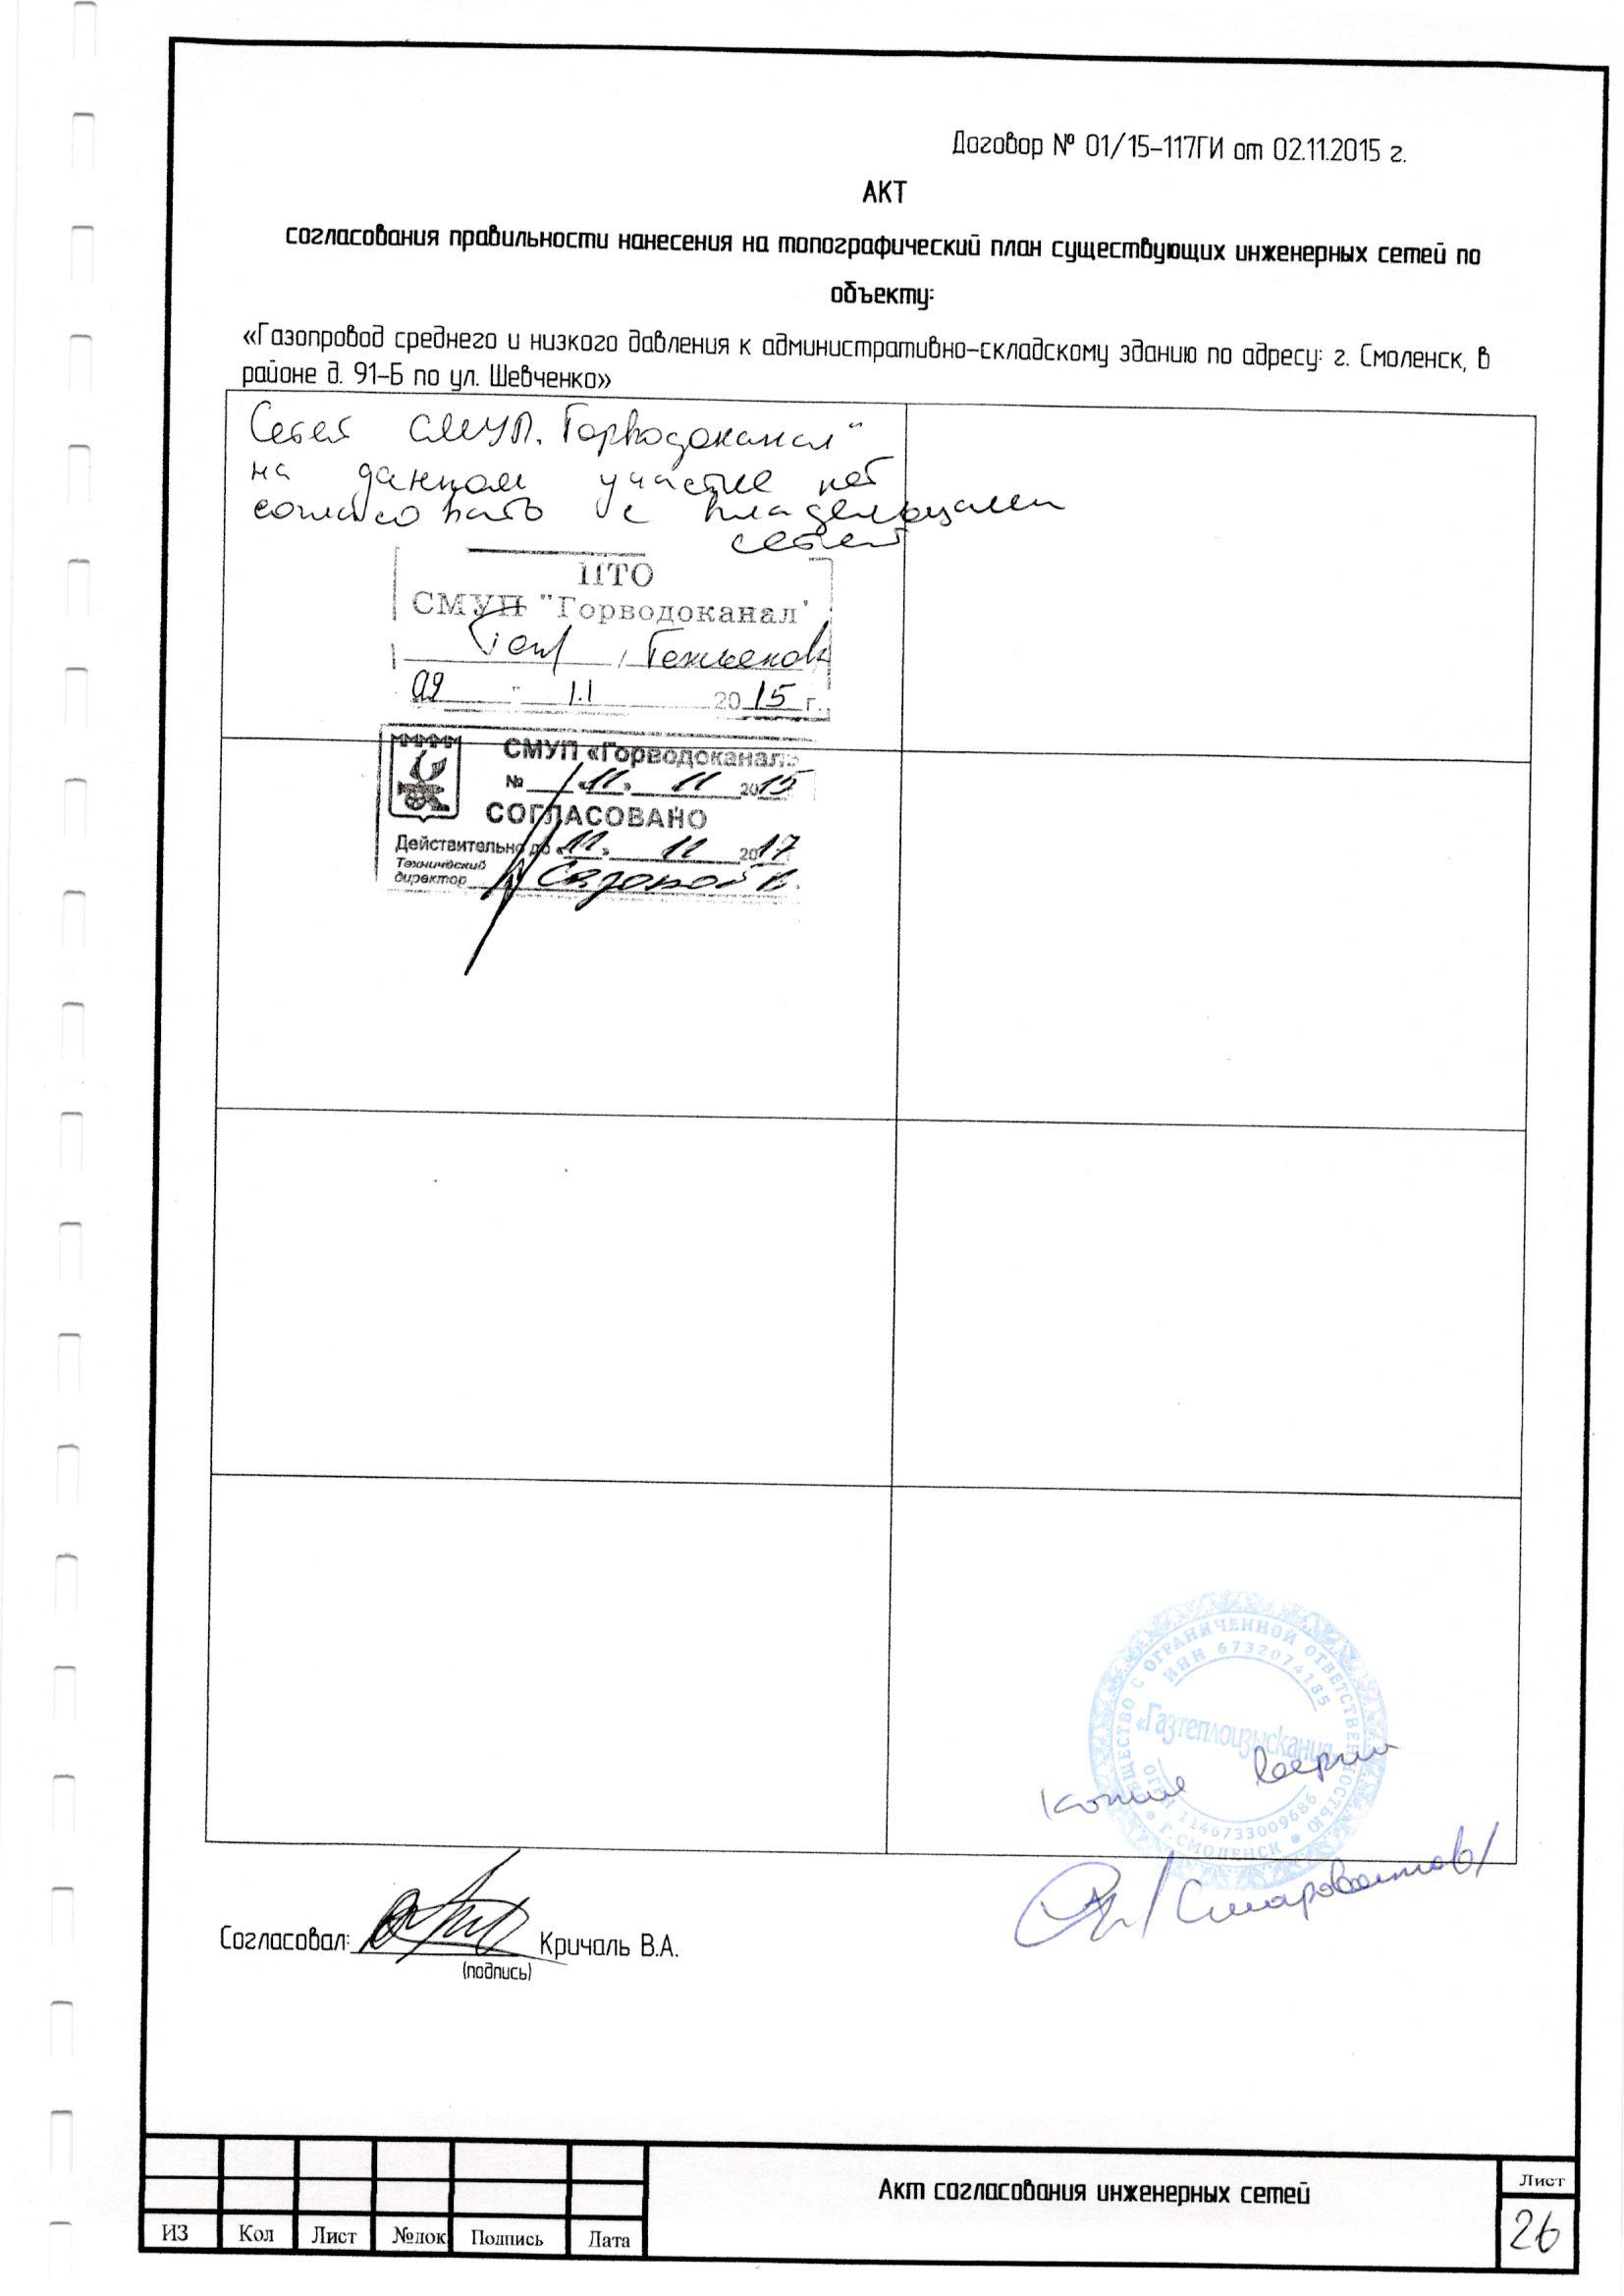 Договор № 01/15-117ГИ от 02.11.2015 г.
АКТ
согласования правильности нанесения на топографический план существующих инженерных сетей по
объекту:
«Газопровод среднего и низкого давления к административно-складскому зданию по адресу: г. Смоленск, в
районе д. 91-Б по ул. Шевченко»
Сетей СМУП "Горводоканал"
на данном участке нет
согласовать с владельцами
сетей
ПТО
СМУП "Горводоканал"
09 " 11 2015 г.
СМУП «Горводоканал»
№ «11» 11 2015
СОГЛАСОВАНО
Действительно до «11» 11 2017
Технический
директор Садовой В.
ОБЩЕСТВО С ОГРАНИЧЕННОЙ ОТВЕТСТВЕННОСТЬЮ
ИНН 6732074185
«Газтеплоизыскания»
ОГРН 1146733009686
г. СМОЛЕНСК
копия верна
Согласовал: Кричаль В.А.
(подпись)
Акт согласования инженерных сетей
Лист
26
ИЗ Кол Лист №док Подпись Дата